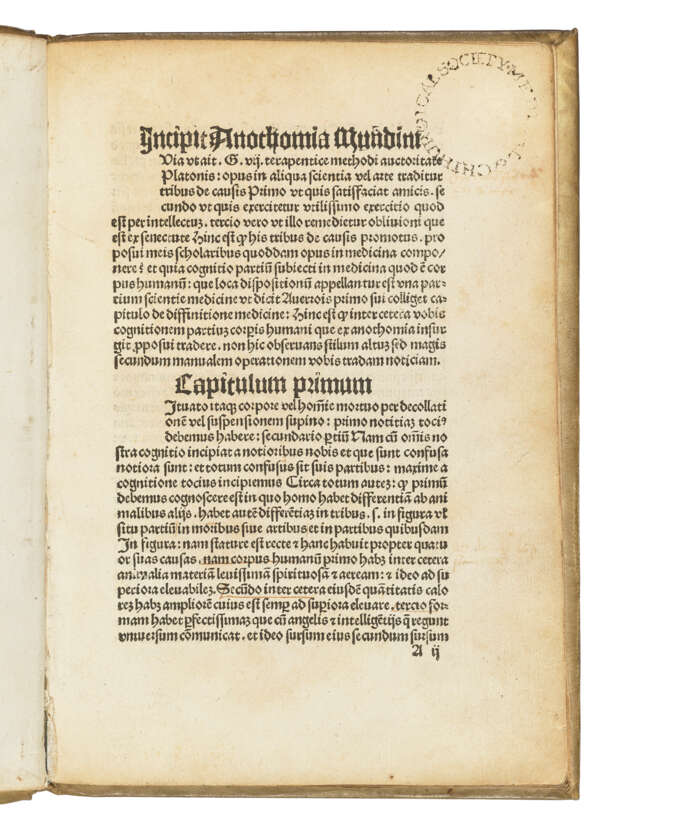 MEDICAL & CHIRURGICAL SOCIETY
Incipit Anothomia Mūdini
Uia vt ait . G . vij . terapentice methodi auctoritate
Platonis : opus in aliqua scientia vel arte traditur
tribus de causis Primo vt quis satisfaciat amicis . se
cundo vt quis exercitetur vtilissimo exercitio quod
est per intellectuȝ . tercio vero vt illo remedietur obliuioni que
est ex senectute Hinc est ꝙ his tribus de causis promotus . pro
posui meis scholaribus quoddam opus in medicina compo/
nere ⁊ et quia cognitio partiū subiecti in medicina quod ē cor
pus humanū : que loca dispositionū appellantur est vna par-
tium scientie medicine vt dicit Auerrois primo sui colliget ca-
pitulo de diffinitione medicine : Hinc est ꝙ inter cetera vobis
cognitionem partiuȝ corpis humani que ex anothomia insur
git ꝓposui tradere . non hic obseruans stilum altuȝ sed magis
secundum manualem operationem vobis tradam noticiam .
Capitulum primum
Ituato itaqȝ corpore vel homīe mortuo per decollati
onē vel suspensionem supino : primo notitiaȝ toci⁹
debemus habere : secundario ꝑtiū Nam cū omīs no
stra cognitio incipiat a notioribus nobis et que sunt confusa
notiora sunt : et totum confusus sit suis partibus : maxime a
cognitione tocius incipiemus Circa totum auteȝ : ꝙ primū
debemus cognoscere est in quo homo habet differentiā ab ani
malibus alijs . habet autē differētiaȝ in tribus . s . in figura vl̄
situ partiū in moribus siue artibus et in partibus quibusdam
In figura : nam stature est recte ⁊ hanc habuit propter quatu
or suas causas . nam corpus humanū primo habȝ inter cetera
animalia materiā leuissimā spirituosā ⁊ aeream : ⁊ ideo ad su
periora eleuabileȝ . Secūdo inter cetera eiusdē quantitatis calo
reȝ habȝ ampliorē cuius est semꝑ ad supiora eleuare . tercio for-
mam habet ꝑfectissimaȝ que cū angelis ⁊ intelligētijs q̄ regunt
vniuersum cōmunicat . et ideo sursum eius secundum sursum
A ij